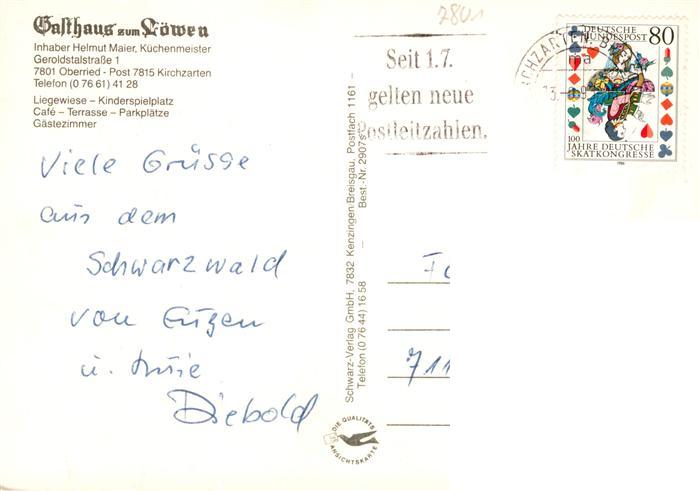 Gasthaus zum Löwen
Inhaber Helmut Maier, Küchenmeister
Geroldstalstraße 1
7801 Oberried - Post 7815 Kirchzarten
Telefon (0 76 61) 41 28
Liegewiese – Kinderspielplatz
Café – Terrasse – Parkplätze
Gästezimmer
Viele Grüsse
aus dem
Schwarzwald
von Eugen
u.
Diebold
Schwarz-Verlag GmbH, 7832 Kenzingen/Breisgau, Postfach 1161 –
Telefon (0 76 44) 16 58 – Best.-Nr. 2907
DIE QUALITÄTS
ANSICHTSKARTE
7801
Seit 1.7.
gelten neue
Postleitzahlen.
CHZARTEN, B
ma
DEUTSCHE
BUNDESPOST 80
100
JAHRE DEUTSCHE
SKATKONGRESSE
1986
711